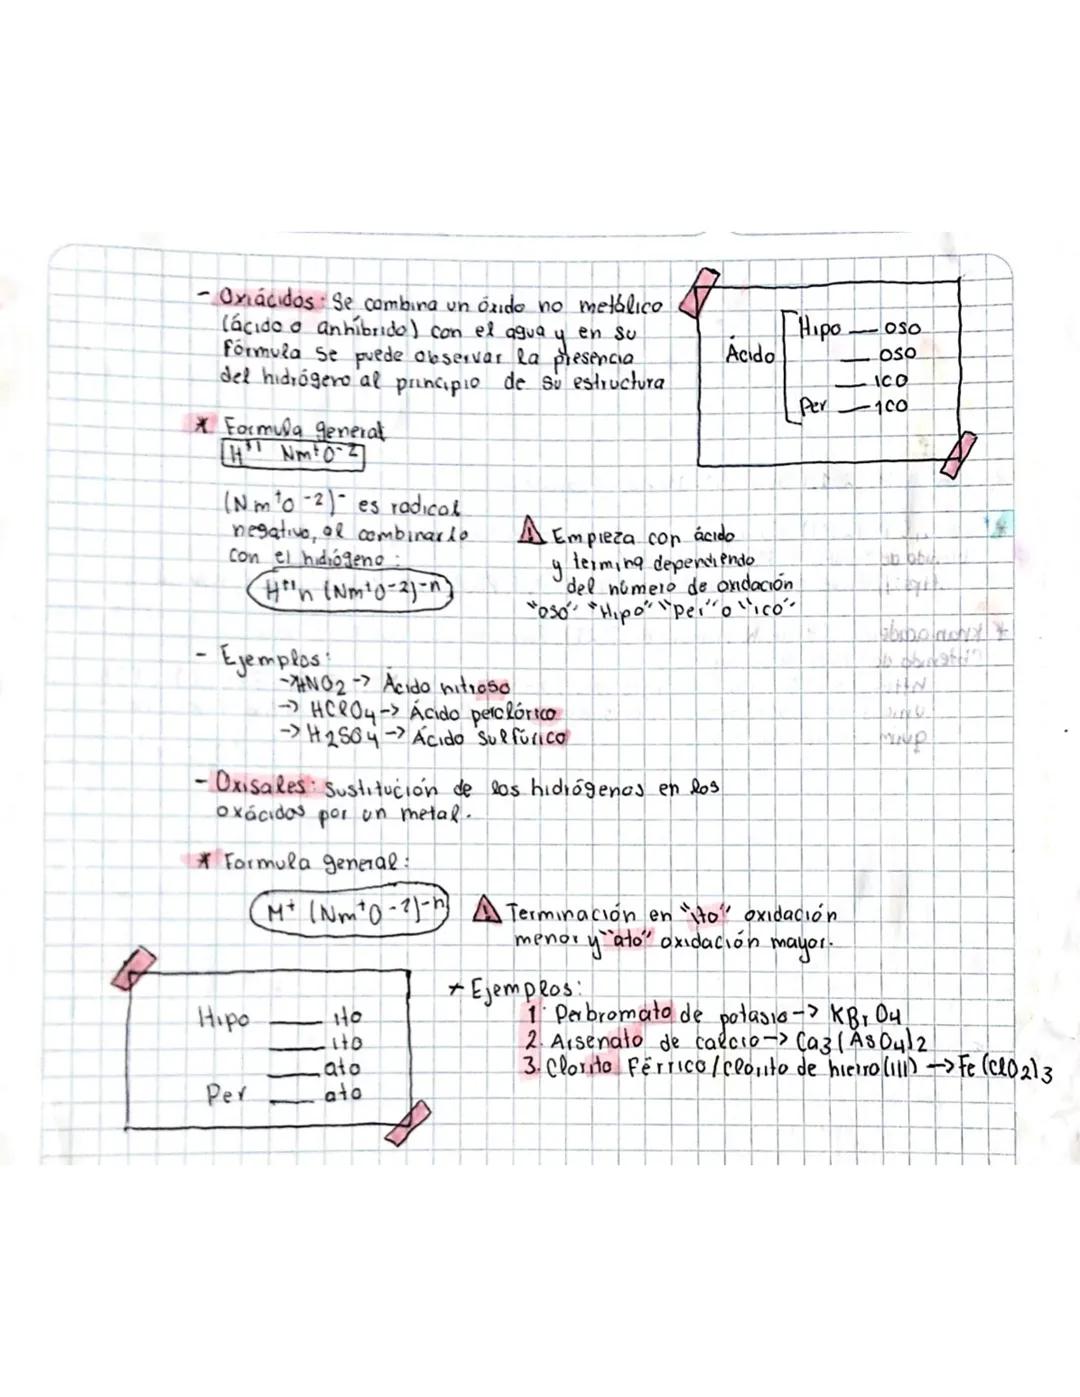 - Oxiácidos: Se combina un óxido no metálico
(ácido o anhíbrido) con el agua y en su
fórmula se puede observar la presencia
del hidrógeno al principio de su estructura
Ácido
Hipo — oso
— oso
— ico
Per — ico
* Formula general
H⁺¹ Nm⁺O⁻²
(Nm⁺O⁻²)⁻ es radical
negativo, al combinarlo
con el hidógeno:
H⁺¹n (Nm⁺O⁻²)⁻ⁿ
Empieza con ácido
y termina dependiendo
del número de oxidación
"oso" "Hipo" "Per" o "ico"
- Ejemplos:
→ HNO2 → Ácido nitroso
→ HClO4 → Ácido perclórico
→ H2SO4 → Ácido Sulfúrico
- Oxisales: Sustitución de los hidrógenos en los
oxácidos por un metal.
* Formula general:
M⁺ (Nm⁺O⁻²)⁻ⁿ
Terminación en "ito" oxidación
menor y "ato" oxidación mayor.
Hipo — ito
— ito
— ato
Per — ato
* Ejemplos:
1. Perbromato de potasio → KBrO4
2. Arsenato de calcio → Ca3(AsO4)2
3. Clorito Férrico / Clorito de hierro (III) → Fe(ClO2)3